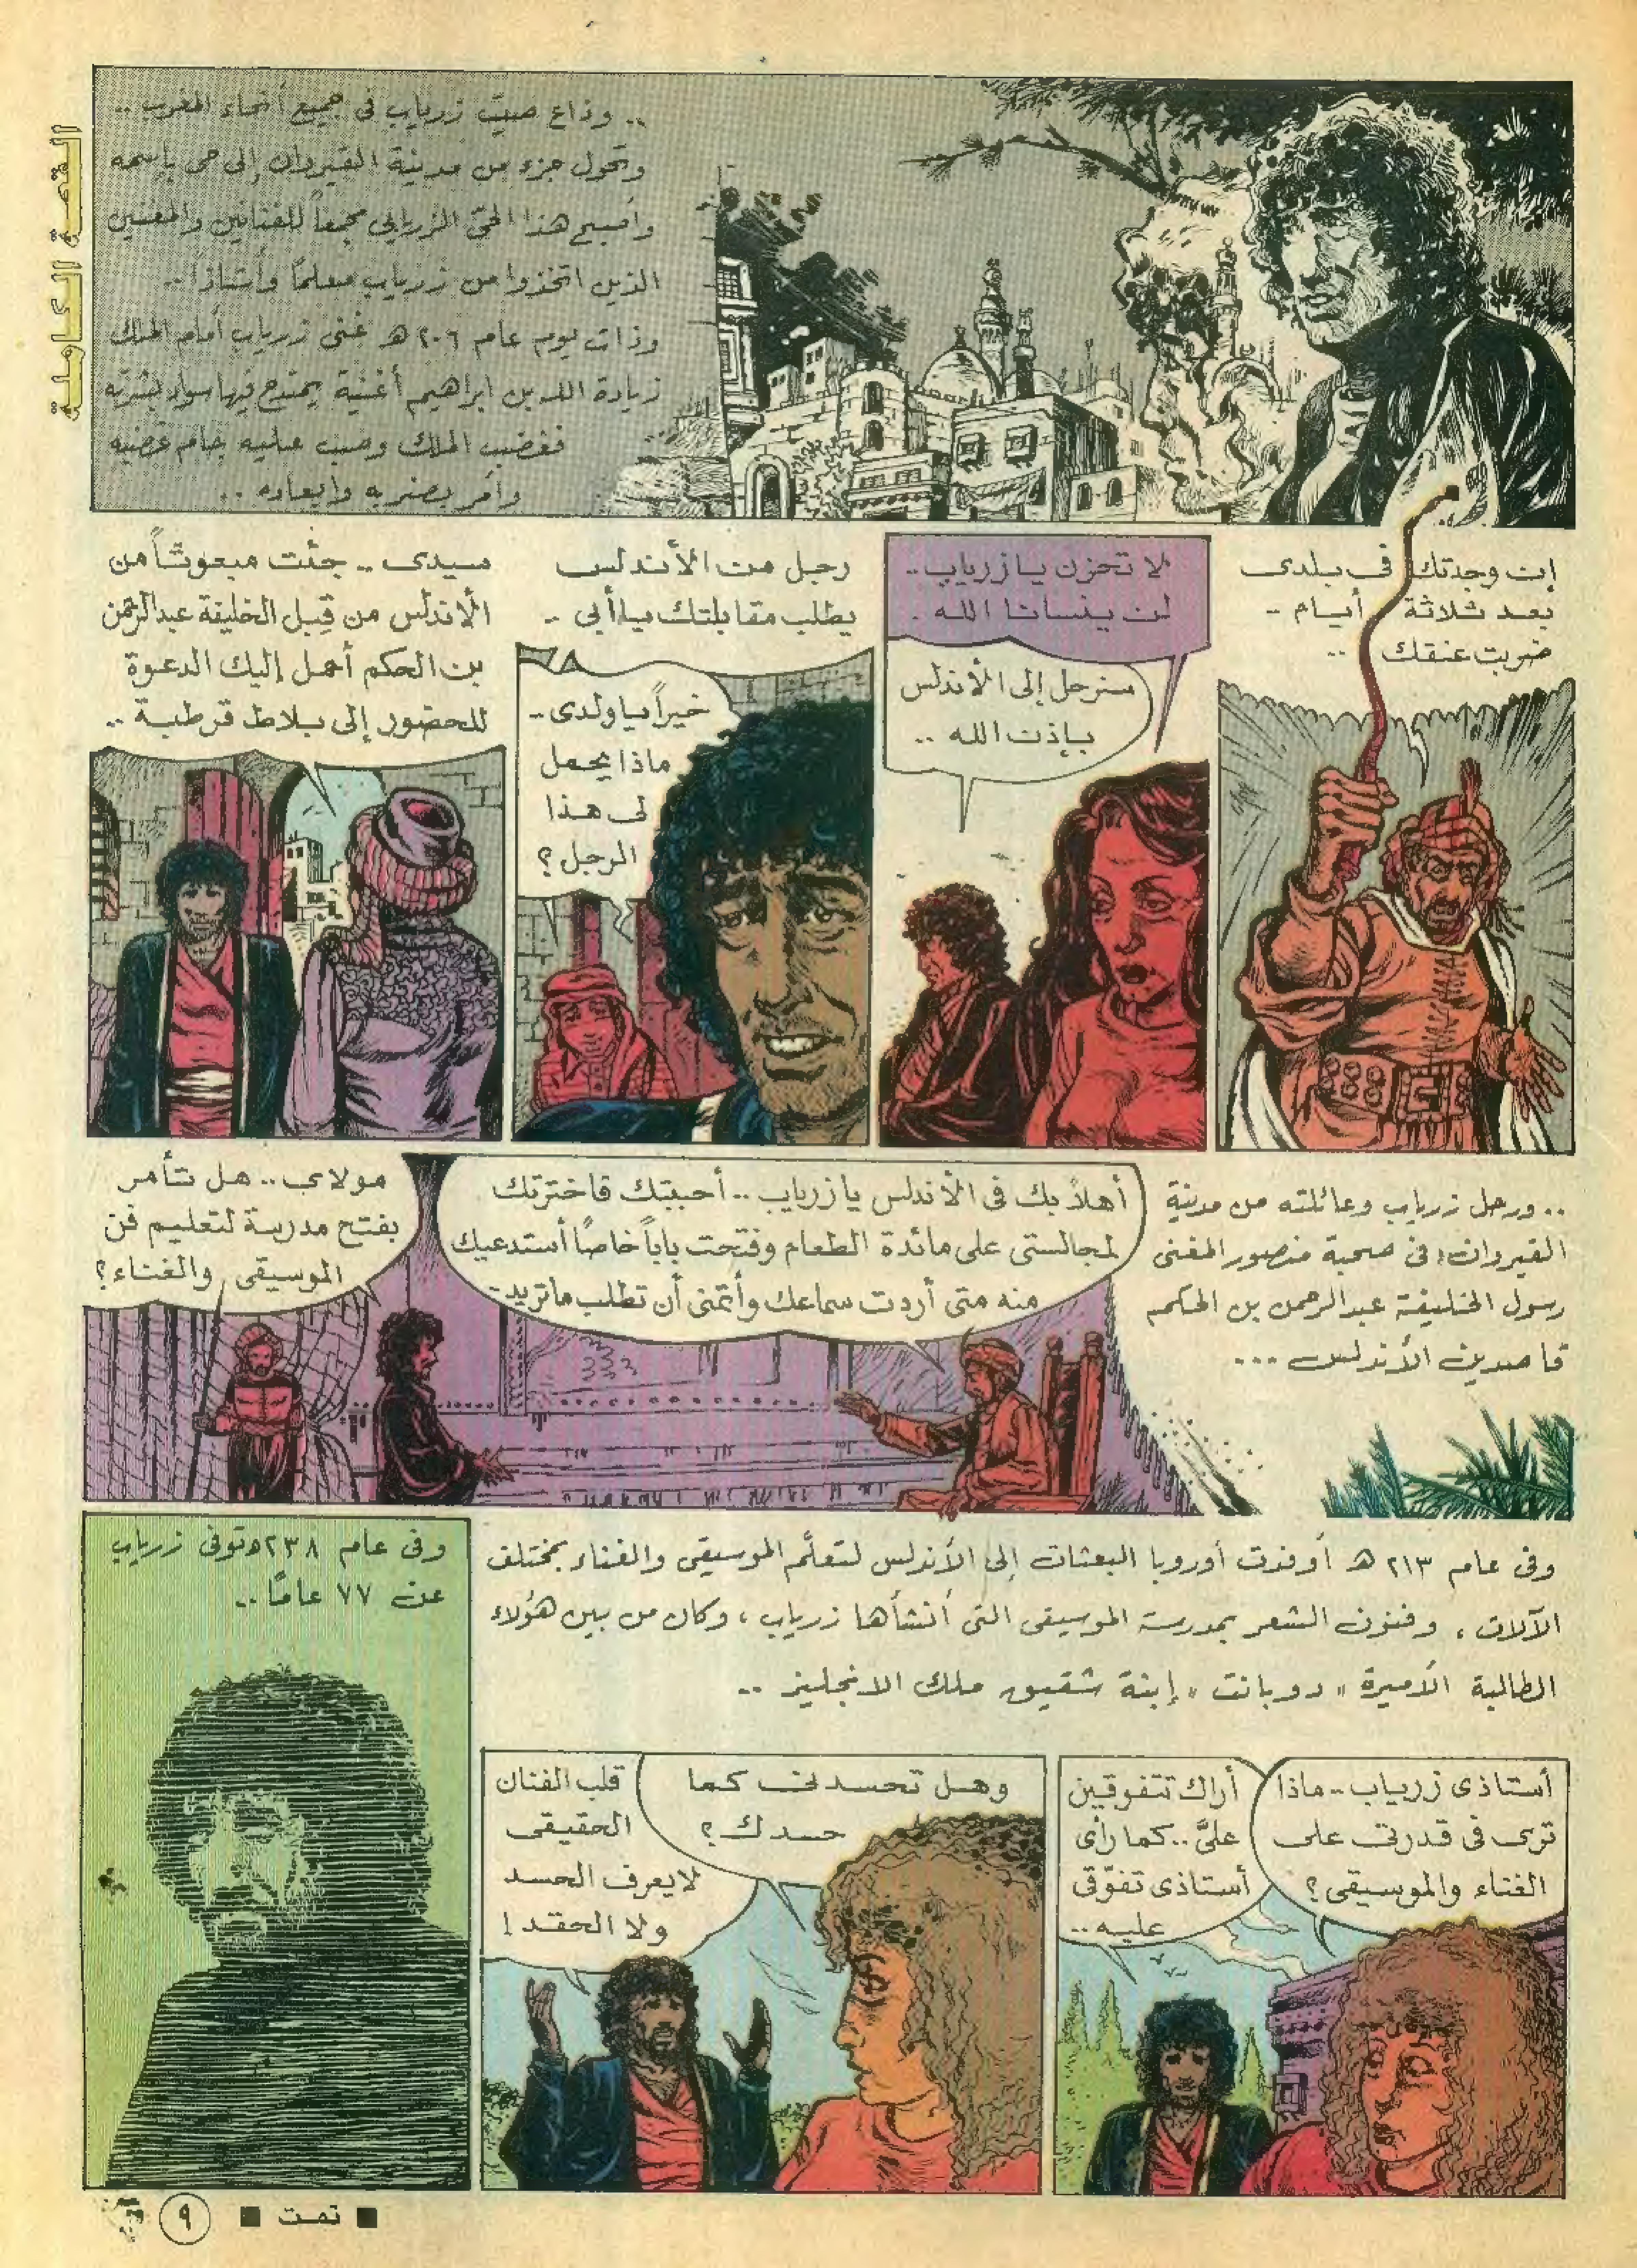 القصة الكاملة
.. وذاع صيت زرياب في جميع أنحاء المغرب ..
وتحول جزء من مدينة القيروان إلى حي بإسمه
وأصبح هذا الحيّ الزريابي مجمعاً للفنانين والمغنيين
الذين اتخذوا من زرياب معلماً وأستاذاً ..
وذات يوم عام ٢٠٦ هـ غنى زرياب أمام الملك
زيادة الله بن ابراهيم أغنية يمتدح فيها سواد بشرته
فغضب الملك وصب عليه جام غضبه
وأمر بضربه وابعاده ..
إن وجدتك في بلدى
بعد ثلاثة أيام ..
ضربت عنقك ..
لا تحزن يا زرياب ..
لن ينسانا الله .
سنرحل إلى الأندلس
بإذن الله ..
رجل من الأندلس
يطلب مقابلتك يا أبي ..
خيراً يا ولدى ..
ماذا يحمل
لي هذا
الرجل ؟
سيدى .. جئت مبعوثاً من
الأندلس من قِبل الخليفة عبدالرحمن
بن الحكم أحمل إليك الدعوة
للحضور إلى بلاط قرطبة ..
.. ورحل زرياب وعائلته من مدينة
القيروان في صحبة منصور المغنى
رسول الخليفة عبدالرحمن بن الحكم
قاصدين الأندلس ...
أهلاً بك في الأندلس يا زرياب .. أحببتك فاخترتك
لمجالستى على مائدة الطعام وفتحت باباً خاصاً أستدعيك
منه متى أردت سماعك وأتمنى أن تطلب ما تريد ..
مولاي .. هل تأمر
بفتح مدرسة لتعليم فن
الموسيقى والغناء ؟
وفى عام ٢١٣ هـ أوفدت أوروبا البعثات إلى الأندلس لتعلّم الموسيقى والغناء بمختلف
الآلات ، وفنون الشعر بمدرسة الموسيقى التى أنشأها زرياب ، وكان من بين هؤلاء
الطالبة الأميرة " دوبانت " إبنة شقيق ملك الانجليز ..
أستاذى زرياب .. ماذا
ترى في قدرتي على
الغناء والموسيقى ؟
أراك تتفوقين
علىَّ .. كما رأى
أستاذى تفوّقى
عليه ..
وهل تحسدني كما
حسدك ؟
قلب الفنان
الحقيقى
لا يعرف الحسد
ولا الحقد !
وفى عام ٢٣٨هـ توفى زرياب
عن ٧٧ عامًا ..
■ تمت ■
٩